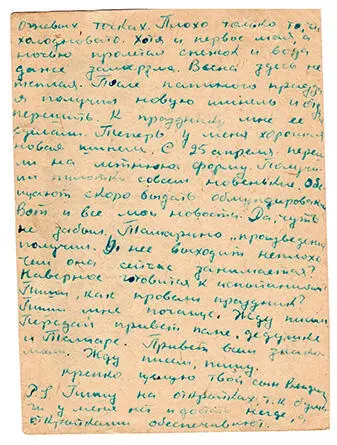 огневых точках. Плохо только то, что
холодновато. Хотя и первое мая а
ночью пролетал снежок и вода
даже замерзла. Весна здесь не
теплая. После папиного приезда
я получил новую шинель и отдал
перешить. К празднику мне её
сделали. Теперь у меня хорошая
новая шинель. С 25 апреля переш
ли на летнюю форму. Получи
ли пилотки совсем новенькие. Обе
щают скоро выдать обмундирован
Вот и все мои новости. Да, чуть
не забыл, Тамарино „произведение
получил. У неё выходит неплохо
Чем она сейчас занимается?
Наверное готовится к испытаниям
Пиши, как провели праздник?
Пиши мне почаще. Жду писем
Передай привет папе, дедушке
и Тамаре. Привет всем знако
мым. Жду писем, пишу.
крепко целую твой сын
P.S. Пишу на открытках, т.к. бумаги
у меня нет и достать негде, а
открытками обеспечивают.